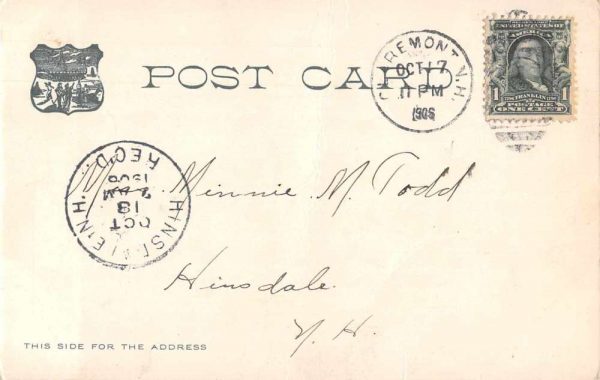 POST CARD
CLAREMONT N.H.
OCT 17
11 PM
1906
UNITED STATES OF AMERICA
1 FRANKLIN 1
POSTAGE
ONE CENT
HINSDALE N.H.
OCT
18
AM
1906
REC'D.
Minnie M. Todd
Hinsdale.
N. H.
THIS SIDE FOR THE ADDRESS